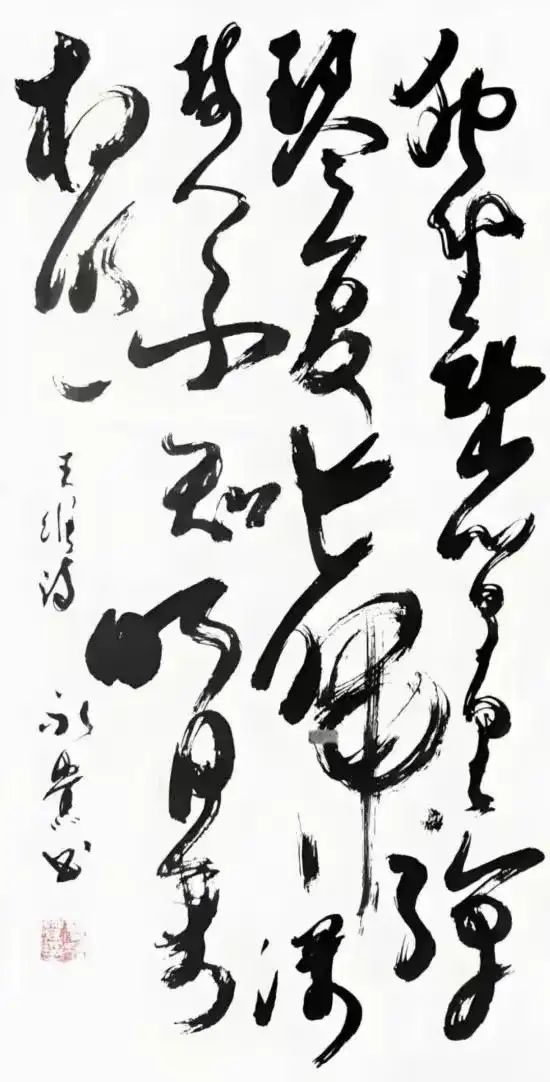 独坐幽篁里弹
琴复长啸深
林人不知明月来
相照
王维诗
永贵书